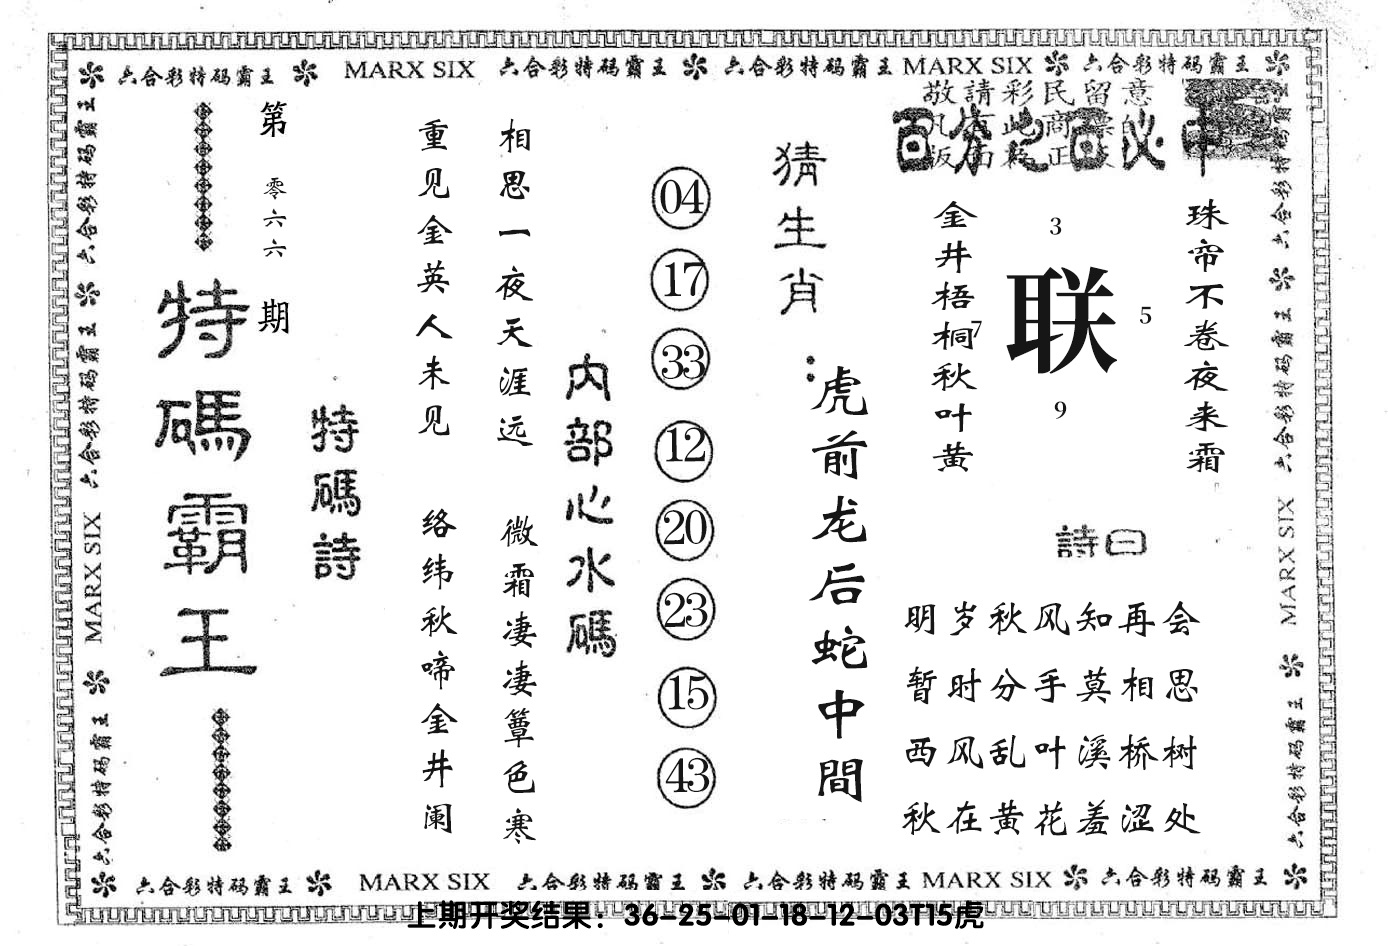 六合彩特码霸王 MARX SIX 六合彩特码霸王 六合彩特码霸王 MARX SIX 六合彩特码霸王
敬請彩民留意
百分之百必中
珠帘不卷夜来霜
3
联
5
7
9
金井梧桐秋叶黄
詩曰
明岁秋风知再会
暂时分手莫相思
西风乱叶溪桥树
秋在黄花羞涩处
猜生肖:
虎前龙后蛇中間
04
17
33
12
20
23
15
43
内部心水碼
相思一夜天涯远
微霜凄凄簟色寒
重见金英人未见
络纬秋啼金井阑
特碼詩
第零六六期
特碼霸王
六合彩特码霸王 六合彩特码霸王 MARX SIX 六合彩特码霸王
六合彩特码霸王 六合彩特码霸王 MARX SIX 六合彩特码霸王
六合彩特码霸王 MARX SIX 六合彩特码霸王 六合彩特码霸王 MARX SIX 六合彩特码霸王
上期开奖结果：36-25-01-18-12-03T15虎